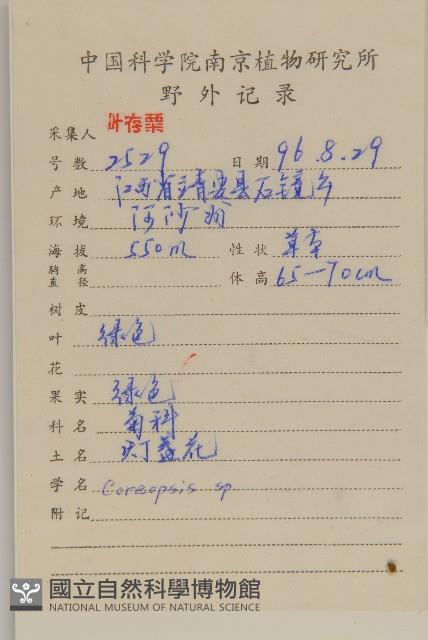 中国科学院南京植物研究所
野外记录
采集人 叶存粟
号数 2529 日期 96.8.29
产地 江西省靖安县石镜乡
环境 河沙
海拔 550m 性状 草本
胸高直径 体高 65—70cm
树皮
叶 绿色
花
果实 绿色
科名 菊科
土名 灯盏花
学名 Coreopsis sp
附记
國立自然科學博物館
NATIONAL MUSEUM OF NATURAL SCIENCE